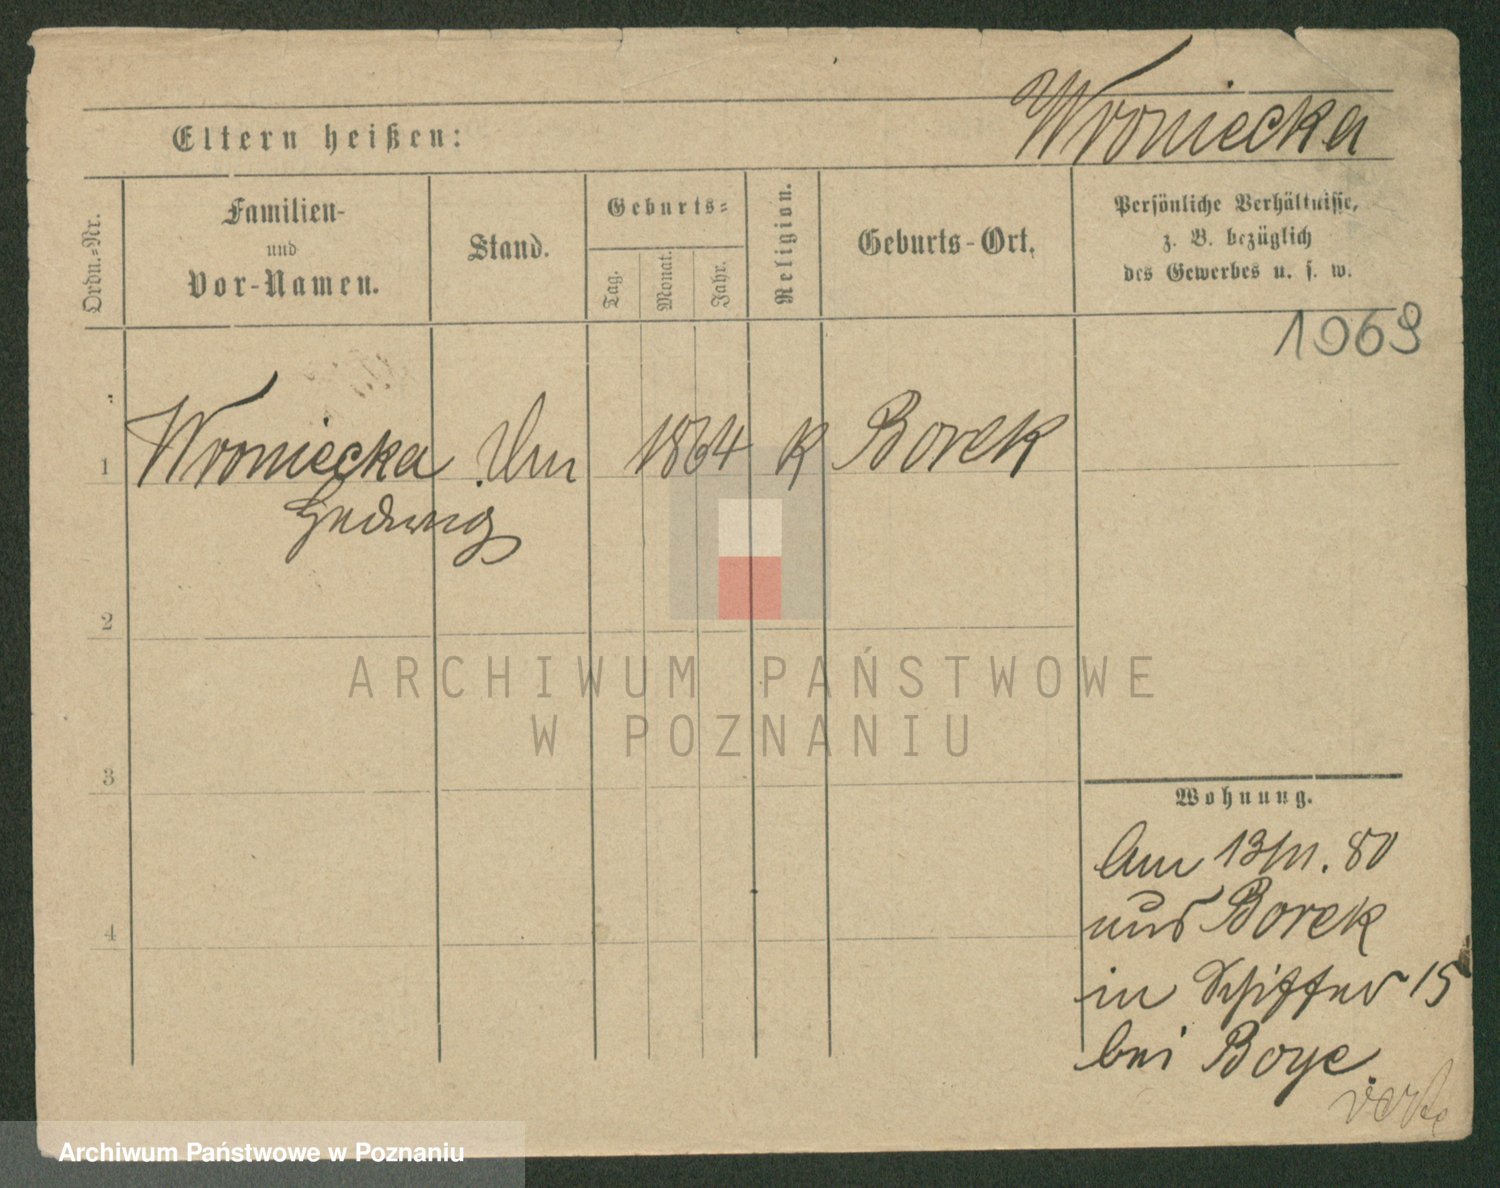 Wroniecka
Eltern heißen:
Ordn.-Nr.
Familien-
und
Vor-Namen.
Stand.
Geburts-
Tag.
Monat.
Jahr.
Religion.
Geburts-Ort.
Persönliche Verhältnisse,
z. B. bezüglich
des Gewerbes u. s. w.
1969
1 Wroniecka 1864 K Borek
Hedwig
2
3
4
Wohnung.
Am 13/11. 80
aus Borek
in Schiffer 15
bei Boye.
verte
ARCHIWUM PAŃSTWOWE
W POZNANIU
Archiwum Państwowe w Poznaniu